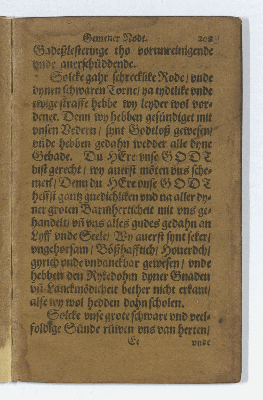 Gemener Nodt. 202
Gadeßlasteringe tho vorunreinigende
vnde auerschüddende.
Solcke gahr schrecklike Rode / vnde
dynen schwaren Torne / ya tydtlike vnde
ewige straffe hebbe wy leyder wol vor-
denet. Denn wy hebben gesündiget mit
vnsen Vedern / synt Godtloß gewesen /
vnde hebben gedahn wedder alle dyne
Gebade. Du HEre vnse GODT
bist gerecht / wy auerst möten vns sche-
men / Denn du HEre vnse GODT
heffst gantz guedichliken vnd na aller dy-
ner groten Barmherticheit mit vns ge-
handelt / vñ vns alles gudes gedahn an
Lyff vnde Seele / Wy auerst synt seker /
vngehorsam / Boßhafftich / Houerdich /
gyrich vnde vndanckbar gewesen / vnde
hebben den Rykedohm dyner Gnaden
vñ Lanckmödicheit bether nicht erkant /
alse wy wol hedden dohn scholen.
Solcke vnse grote schware vnd veel-
foldige Sünde rüwen vns van herten /
Cc vnde